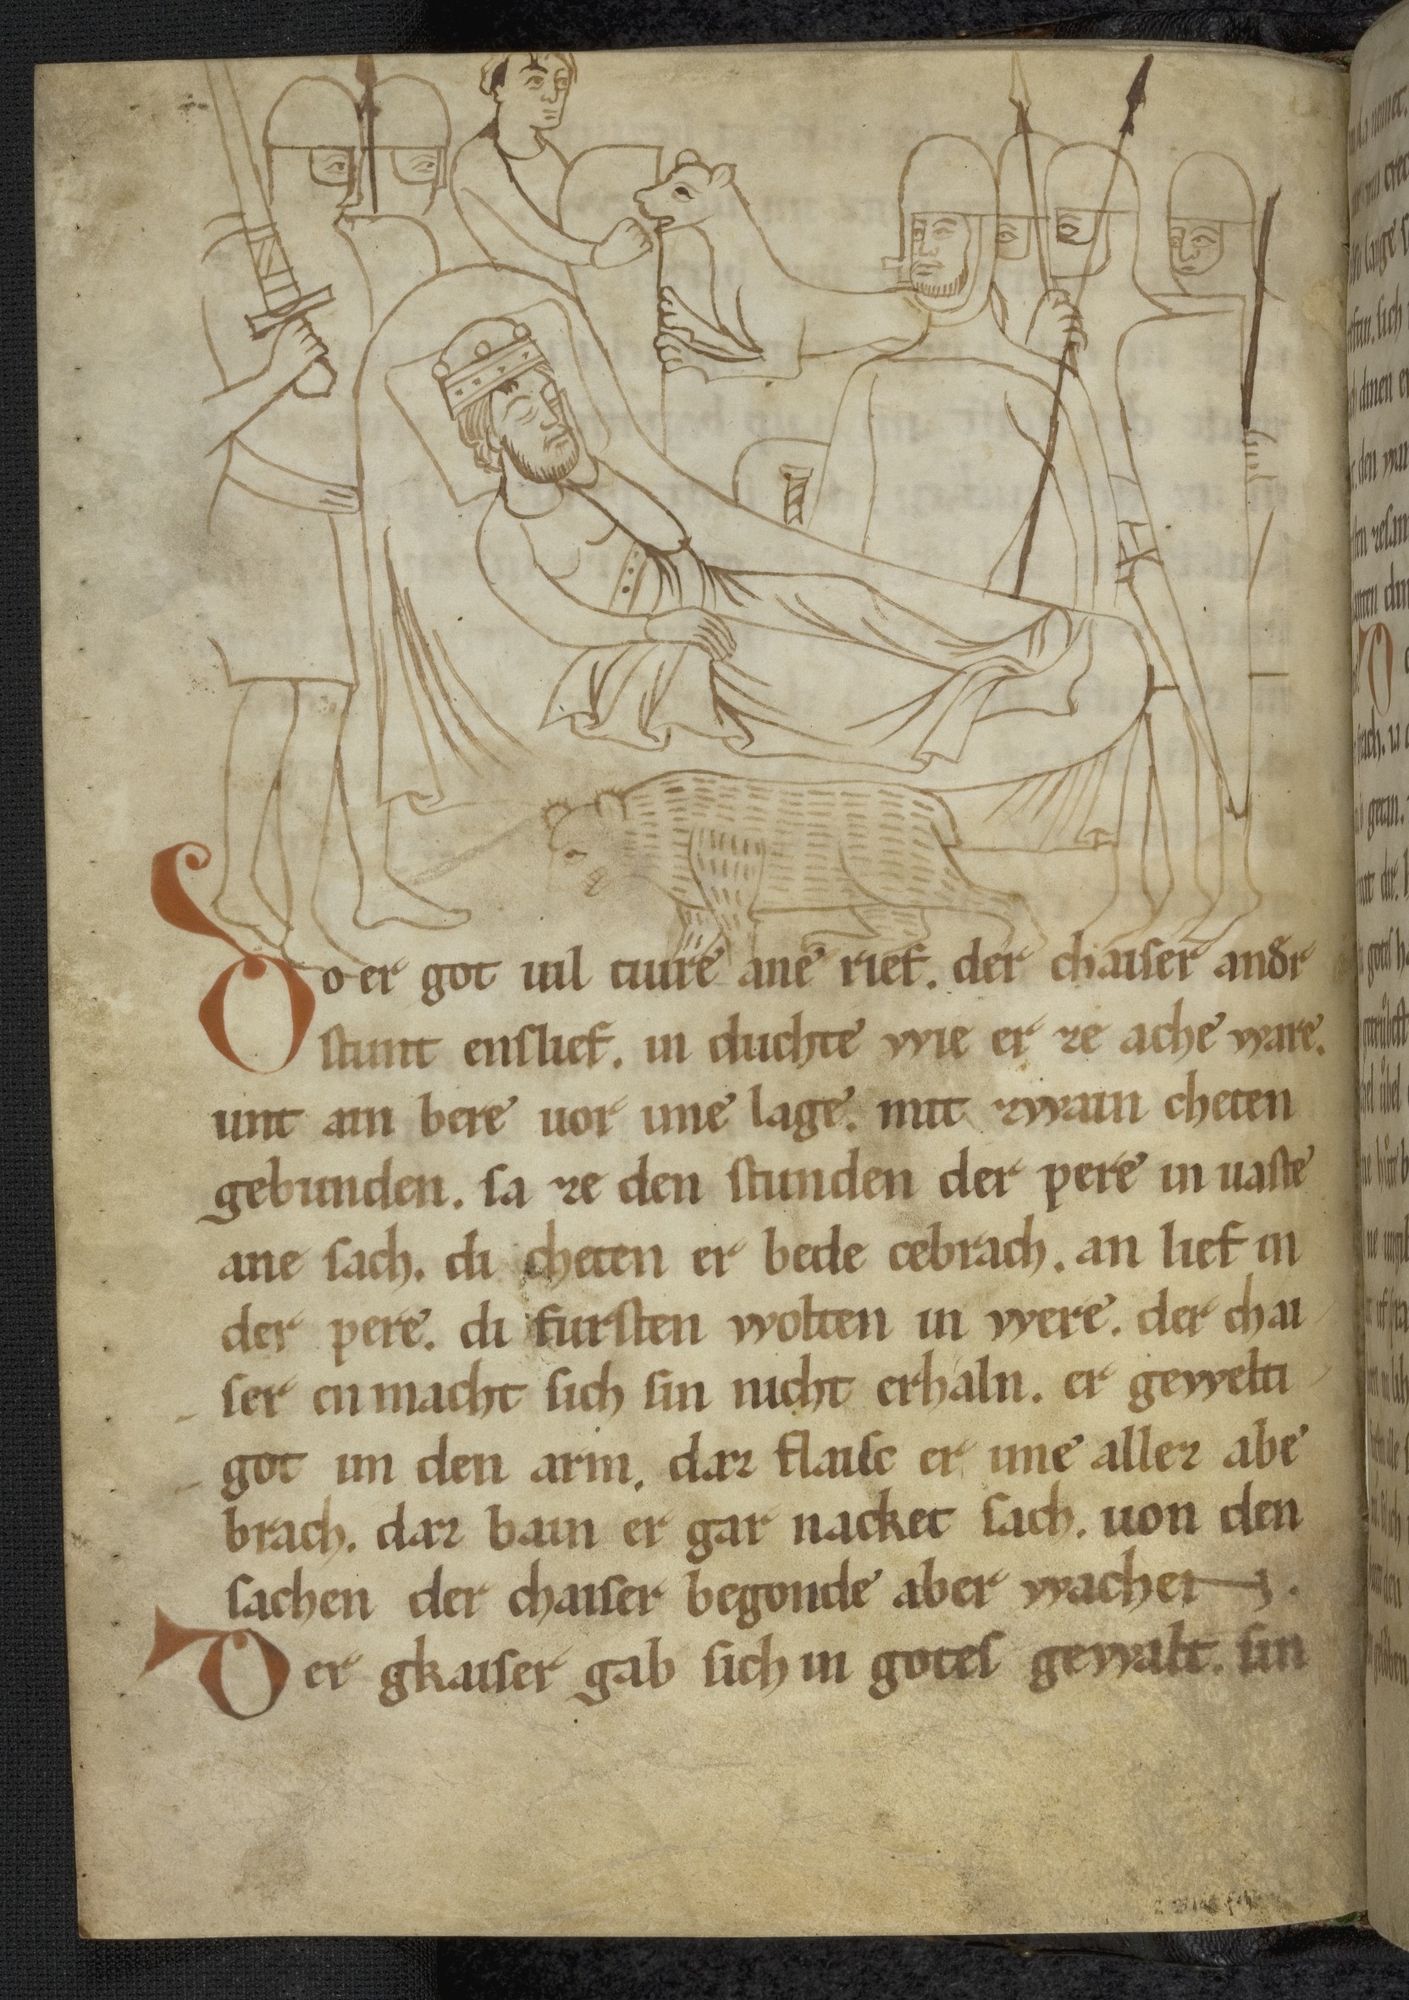 Do er got uil tiure ane rief. der chaiser andˀr
stunt enslief. in duchte wie er ze ache ware.
unt ain bere uor ime lage. mit zwain cheten
gebunden. sa ze den stunden der pere in uaste
ane sach. di cheten er bede cebrach. an lief in
der pere. di fursten wolten in were. der chai
ser en macht sich sin nicht erhaln. er gewelti
got im den arm. daz flaisc er ime allez abe
brach. daz bain er gar nacket sach. uon den
sachen der chaiser begonde aber wachen.
Der gkaiser gab sich in gotes gewalt. sin